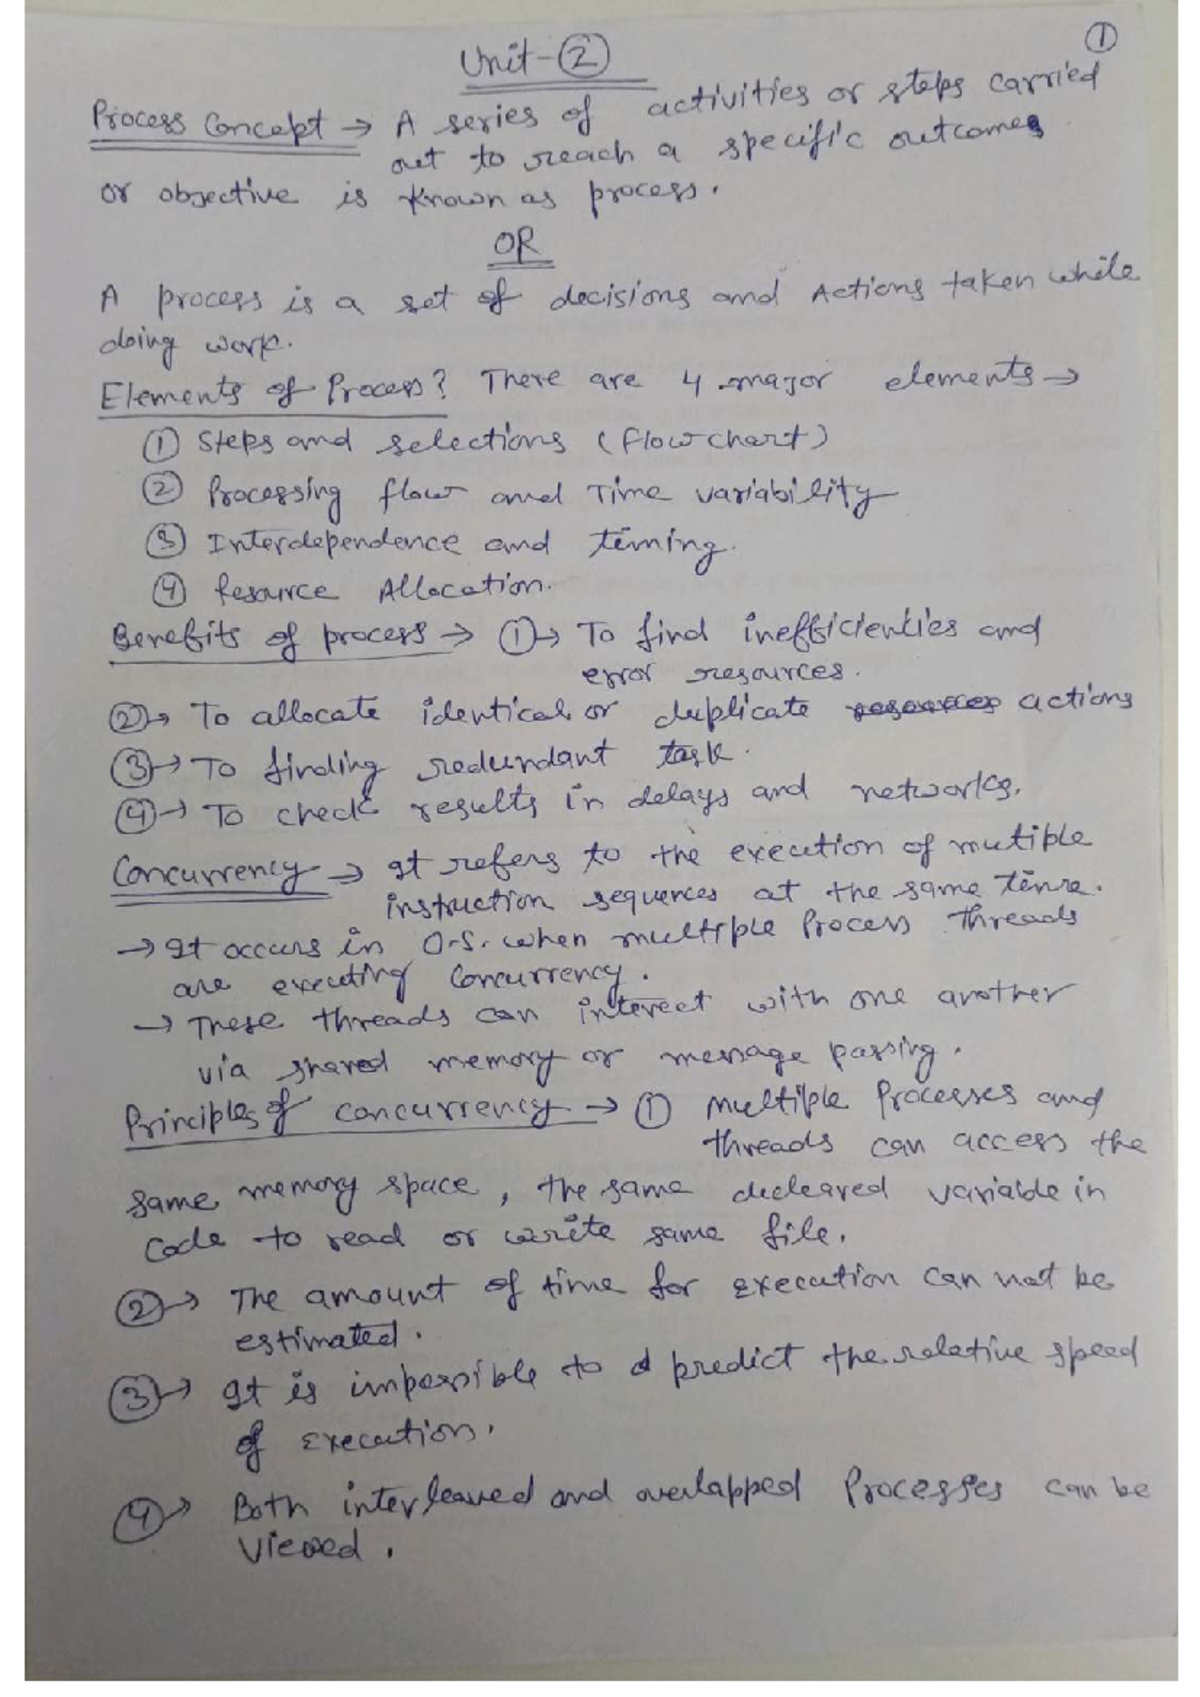 ①
Unit-②
Process Concept → A series of activities or steps carried
out to reach a specific outcomes
or objective is known as process.
OR
A process is a set of decisions and Actions taken while
doing work.
Elements of Process? There are 4 major elements →
① Steps and selections (flowchart)
② Processing flow and Time variability
③ Interdependence and timing.
④ Resource Allocation.
Benefits of process → ①→ To find inefficienties and
error resources.
②→ To allocate identical or duplicate resources actions
③→ To finding redundant task.
④→ To check results in delays and networks.
Concurrency → It refers to the execution of mutiple
instruction sequences at the same time.
→ It occurs in O.S. when multiple Process threads
are executing Concurrency.
→ These threads can interect with one another
via shared memory or message passing.
Principles of concurrency → ① Multiple Processes and
threads can access the
same memory space, the same decleared variable in
Code to read or write same file.
②→ The amount of time for execution can not be
estimated.
③→ It is impossible to predict the relative speed
of execution.
④→ Both interleaved and overlapped Processes can be
viewed.